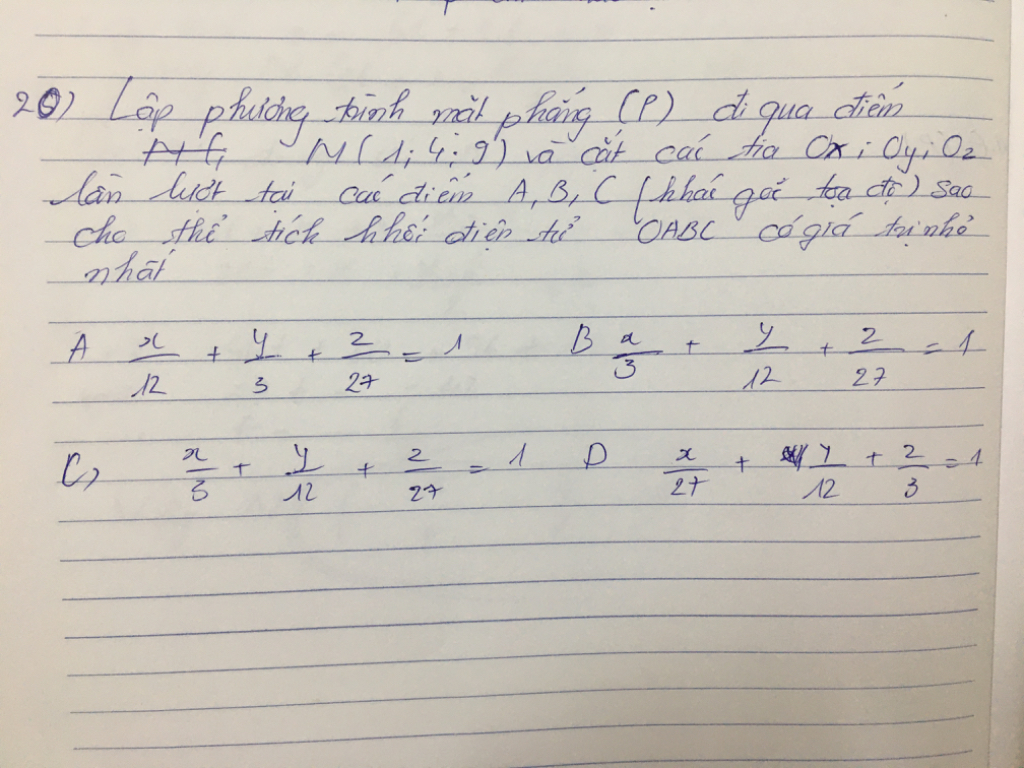 20) Lập phương trình mặt phẳng (P) đi qua điểm
M(1; 4; 9) và cắt các tia Ox; Oy; Oz
lần lượt tại các điểm A, B, C (khác gốc tọa độ) sao
cho thể tích khối điện tử OABC có giá trị nhỏ
nhất
A x/12 + y/3 + z/27 = 1 B x/3 + y/12 + z/27 = 1
C) x/3 + y/12 + z/27 = 1 D x/27 + y/12 + z/3 = 1